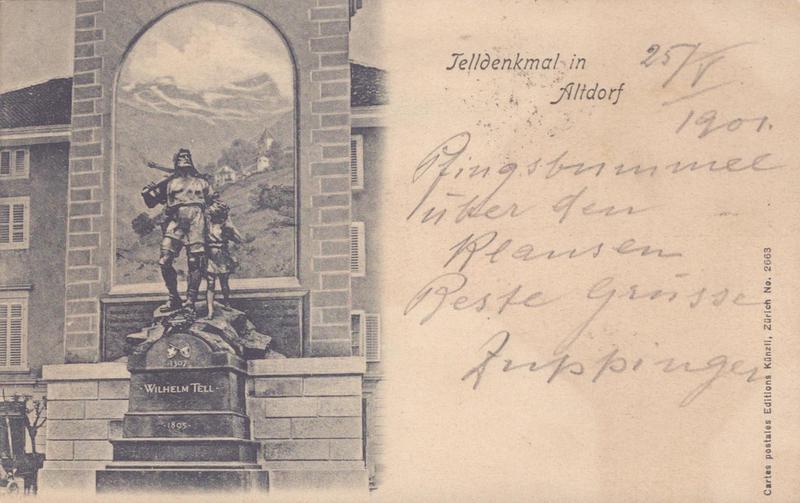 Telldenkmal in
Altdorf
25/V
1901.
Pfingsbummel
über den
Klausen
Beste Grüsse
Zuppinger
1307
WILHELM TELL
1895
Cartes postales Editions Künzli, Zürich No. 2663